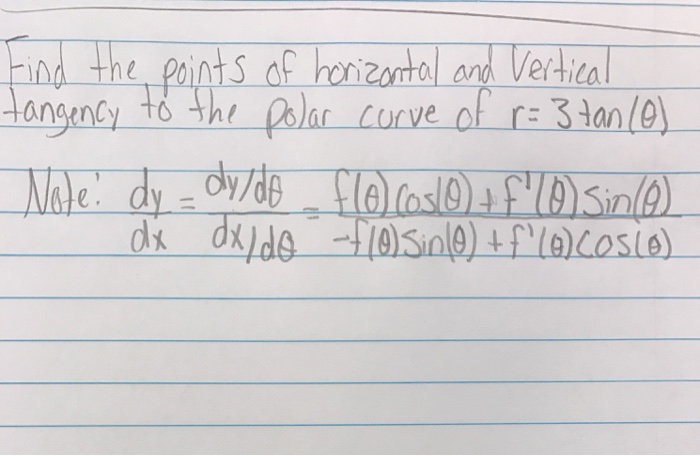 Find the points of horizontal and Vertical
tangency to the polar curve of r=3tan(θ)
Note: dy/dx = (dy/dθ)/(dx/dθ) = (f(θ)cos(θ)+f'(θ)sin(θ))/(-f(θ)sin(θ)+f'(θ)cos(θ))